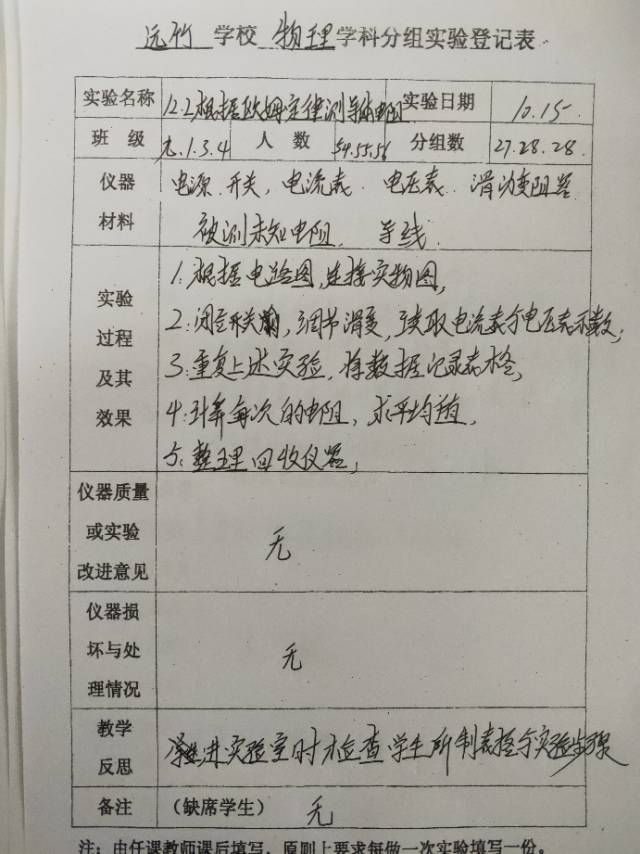 远竹 学校 物理 学科分组实验登记表
实验名称 12.2根据欧姆定律测导体电阻 实验日期 10.15
班级 九.1.3.4 人数 54.55.56 分组数 27.28.28.
仪器材料 电源.开关,电流表.电压表.滑动变阻器
被测未知电阻.导线.
实验过程及其效果 1.根据电路图,连接实物图,
2.闭合开关前,调节滑变,读取电流表与电压表示数;
3.重复上述实验,将数据记录表格,
4.计算每次的电阻,求平均值,
5.整理回收仪器,
仪器质量或实验改进意见 无
仪器损坏与处理情况 无
教学反思 进实验室时检查学生所制表格与实验步骤
备注 (缺席学生) 无
注:由任课教师课后填写,原则上要求每做一次实验填写一份。